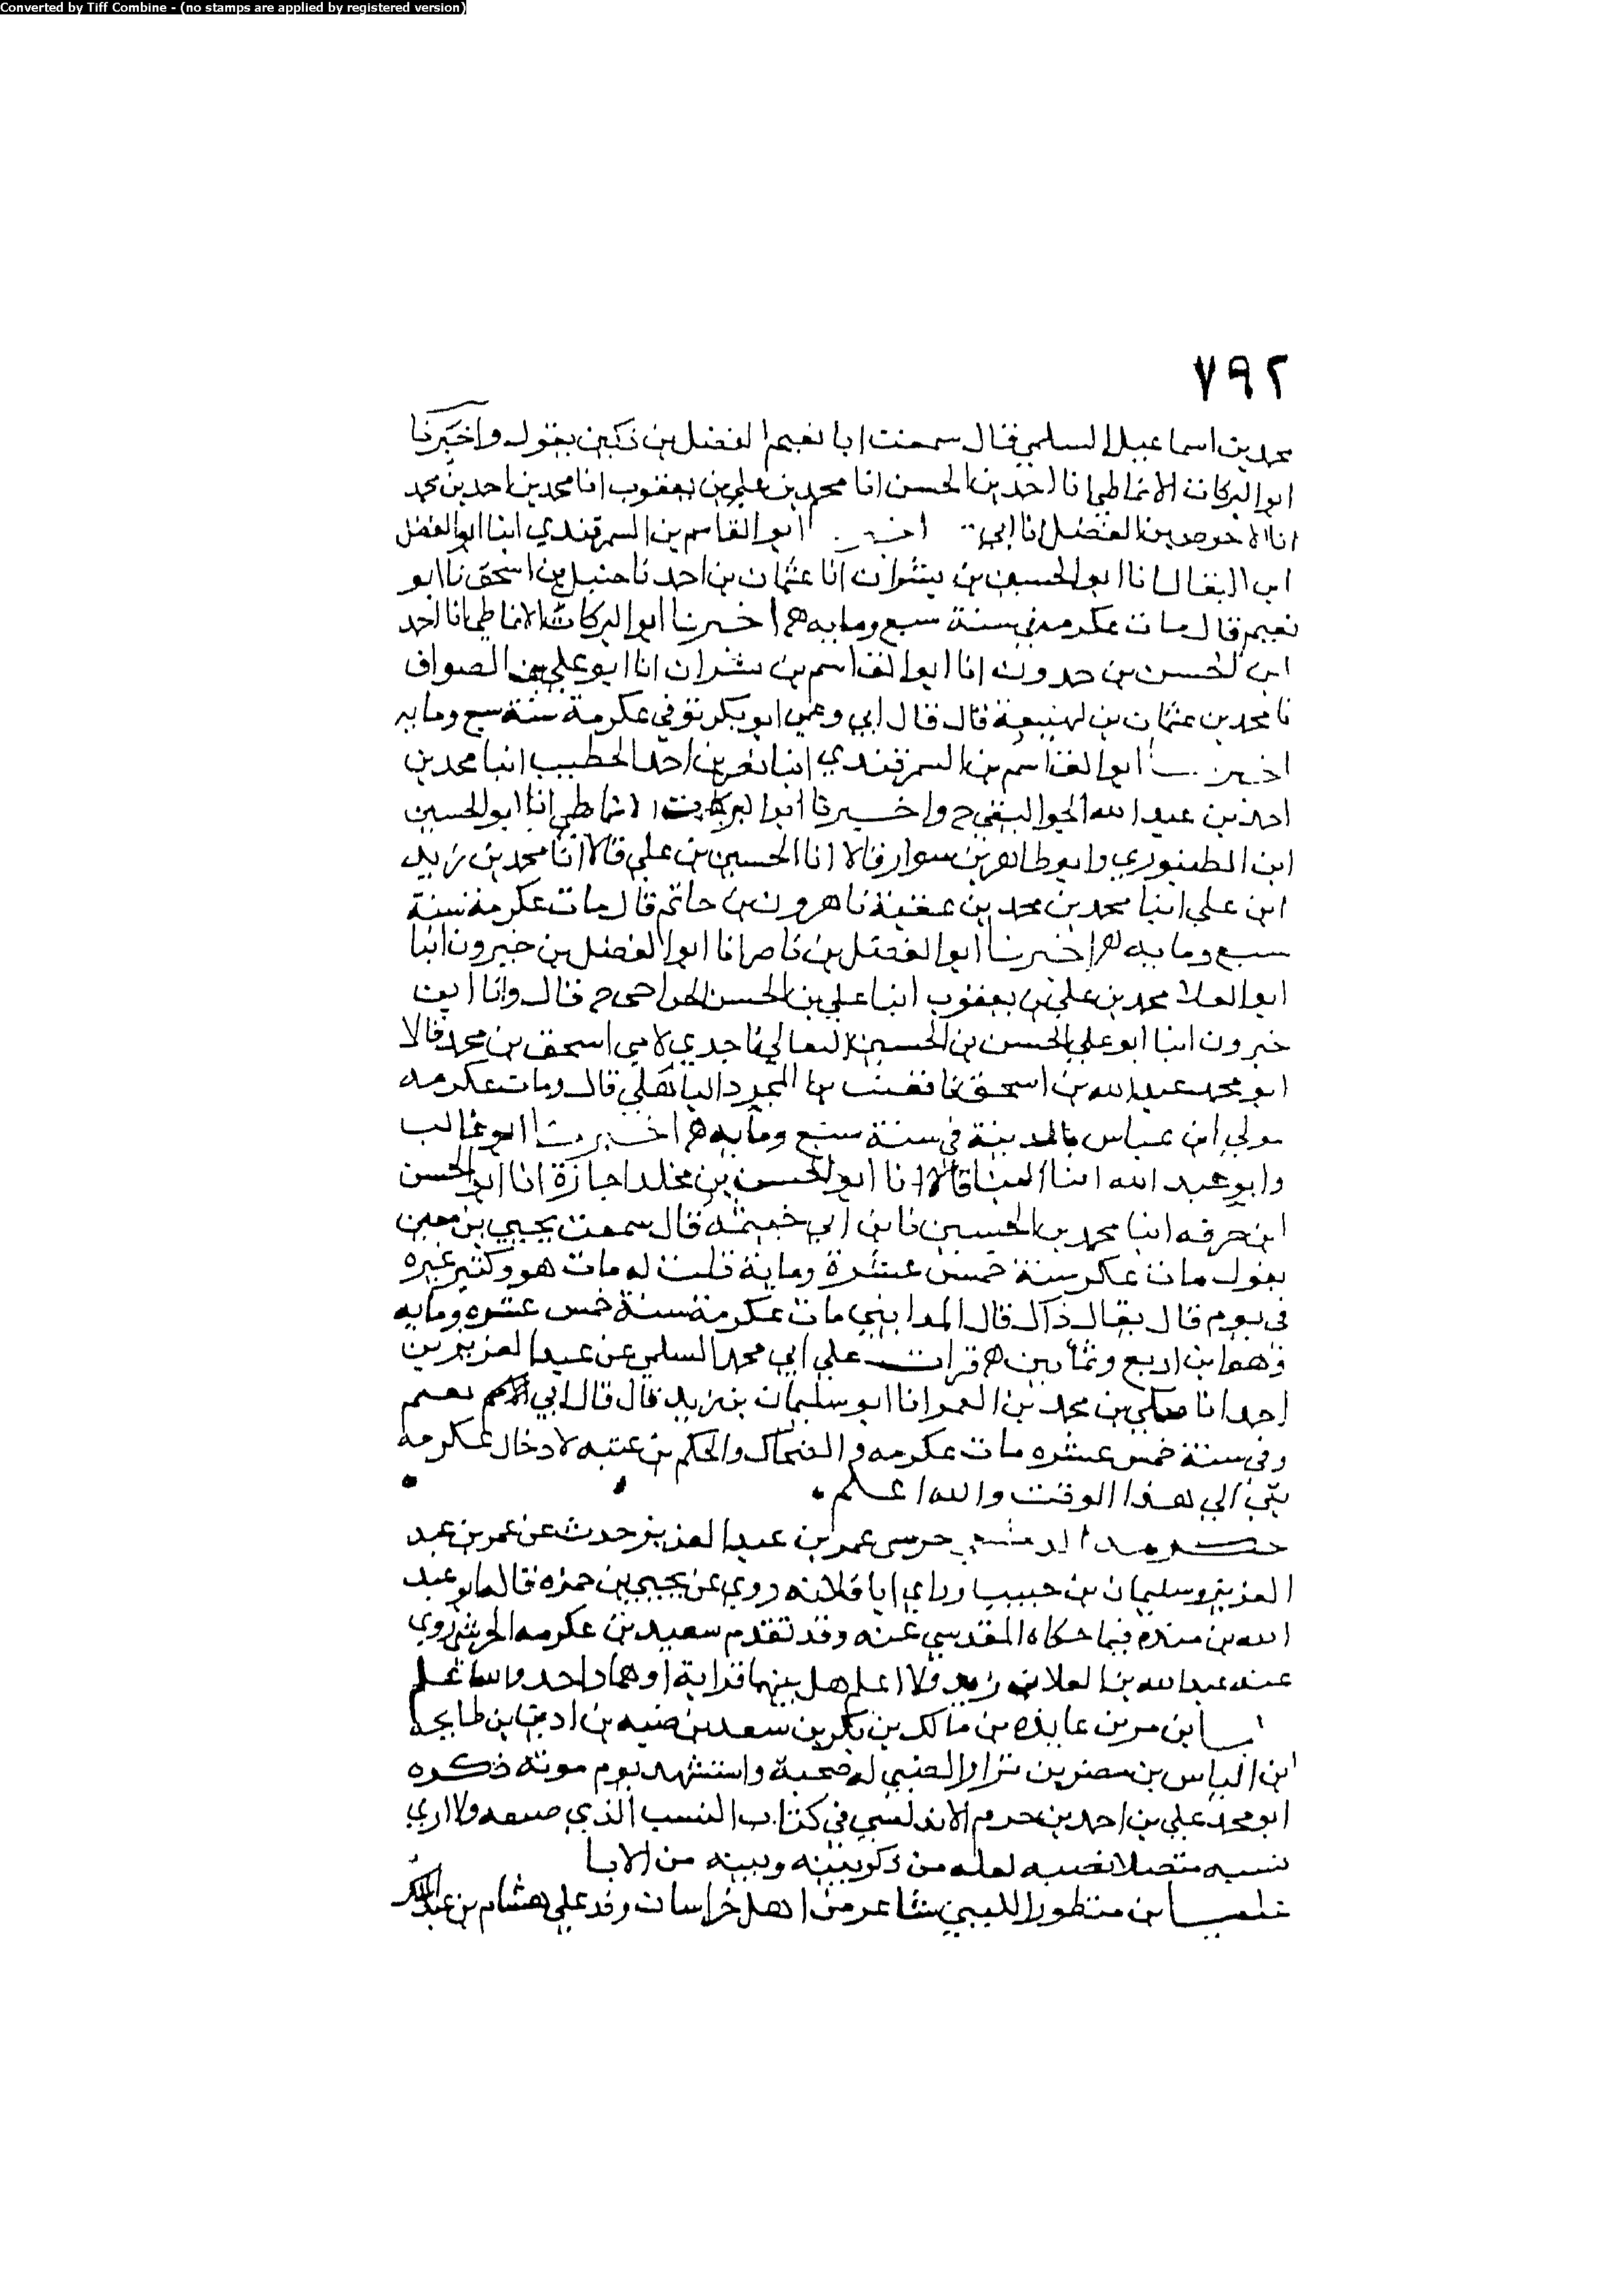 Converted by Tiff Combine - (no stamps are applied by registered version)
٧٩٢
محمد بن اسماعيل السلمي قال سمعت ابا نعيم الفضل بن دكين يقول واخبرنا
ابو البركات الانماطي انا احمد بن الحسن انا محمد بن علي بن يعقوب انا محمد بن احمد بن محمد
انا الاحوص بن الفضل انا ابي ابو القاسم بن السمرقندي انبا ابو الفضل
ابن البقال انا ابو الحسين بن بشران انا عثمان بن احمد نا حنبل بن اسحق نا ابو
نعيم قال مات عكرمه في سنة سبع ومايه اخبرنا ابو البركات الانماطي انا احمد
ابن الحسن بن حدون انا ابو القاسم بن بشران انا ابو علي بن الصواف
نا محمد بن عثمان بن قال قال ابي وعمي ابو بكر توفي عكرمة سنة سبع ومايه
ابو القاسم بن السمرقندي انبا بن احمد الخطيب انبا محمد بن
احمد بن عبد الله الجواليقي ح واخبرنا ابو البركات الانماطي انا ابو الحسين
ابن الطيوري وابو طاهر بن سوار قالا انا الحسين بن علي قالا انا محمد بن زيد
ابن علي انبا محمد بن محمد بن عقبة نا هرون بن حاتم قال مات عكرمة سنة
سبع ومايه اخبرنا ابو الفضل بن ناصر انا ابو الفضل بن خيرون انبا
ابو العلا محمد بن علي بن يعقوب انبا علي بن الحسن الجراحي ح قال وانا ابن
خيرون انبا ابو علي الحسن بن الحسين النعالي نا جدي لامي اسحق بن محمد قالا
ابو محمد عبد الله بن اسحق نا قعنب بن المحرر الباهلي قال ومات عكرمه
مولي ابن عباس بالمدينة في سنة سبع ومايه اخبرنا ابو غالب
وابو عبد الله انبا البنا قالا انا ابو الحسين بن مخلد اجازة انا ابو الحسن
ابن خزفه انبا محمد بن الحسين نا بن ابي خيثمه قال سمعت يحيي بن معين
يقول مات عكر سنة خمس عشرة وماية قلت له مات هو وكثير عزه
في يوم قال يقال ذاك قال المدايني مات عكرمة سنة خمس عشره ومايه
وهو ابن اربع وثمانين قرات علي ابي محمد السلمي عن عبد العزيز بن
احمد انا مكي بن محمد بن العمر انا ابو سليمان بن زيد قال قال ابي
وفي سنة خمس عشره مات عكرمه و الضحاك والحكم بن عتبه لا دخال عكرمه
بقي الي هذا الوقت والله اعلم
عكرمه الدمشقي حرسي عمر بن عبد العزيز حدث عن عمر بن عبد
العزيز وسليمان بن حبيب وراي ابا قلابه روي عن يحيي بن حمزه قاله ابو عبد
الله بن منده فيما حكاه المقدسي عنه وقد تقدم سعيد بن عكرمه الحرشي روي
عنه عبد الله بن العلا بن زبر ولا اعلم هل بينهما قرابة او هما واحد والله اعلم
ابن مر بن عايذه بن مالك بن بكر بن سعد بن ضبه بن اد بن طابخه
ابن الياس بن مضر بن نزار الضبي له صحبة واستشهد يوم موته ذكره
ابو محمد علي بن احمد بن حزم الاندلسي في كتاب النسب الذي صنفه ولا اري
نسبه متصلا لعله من ذكر بينه وبينه من الابا
بن منظور الليثي شاعر من اهل خراسان وفد علي هشام بن عبد الملك